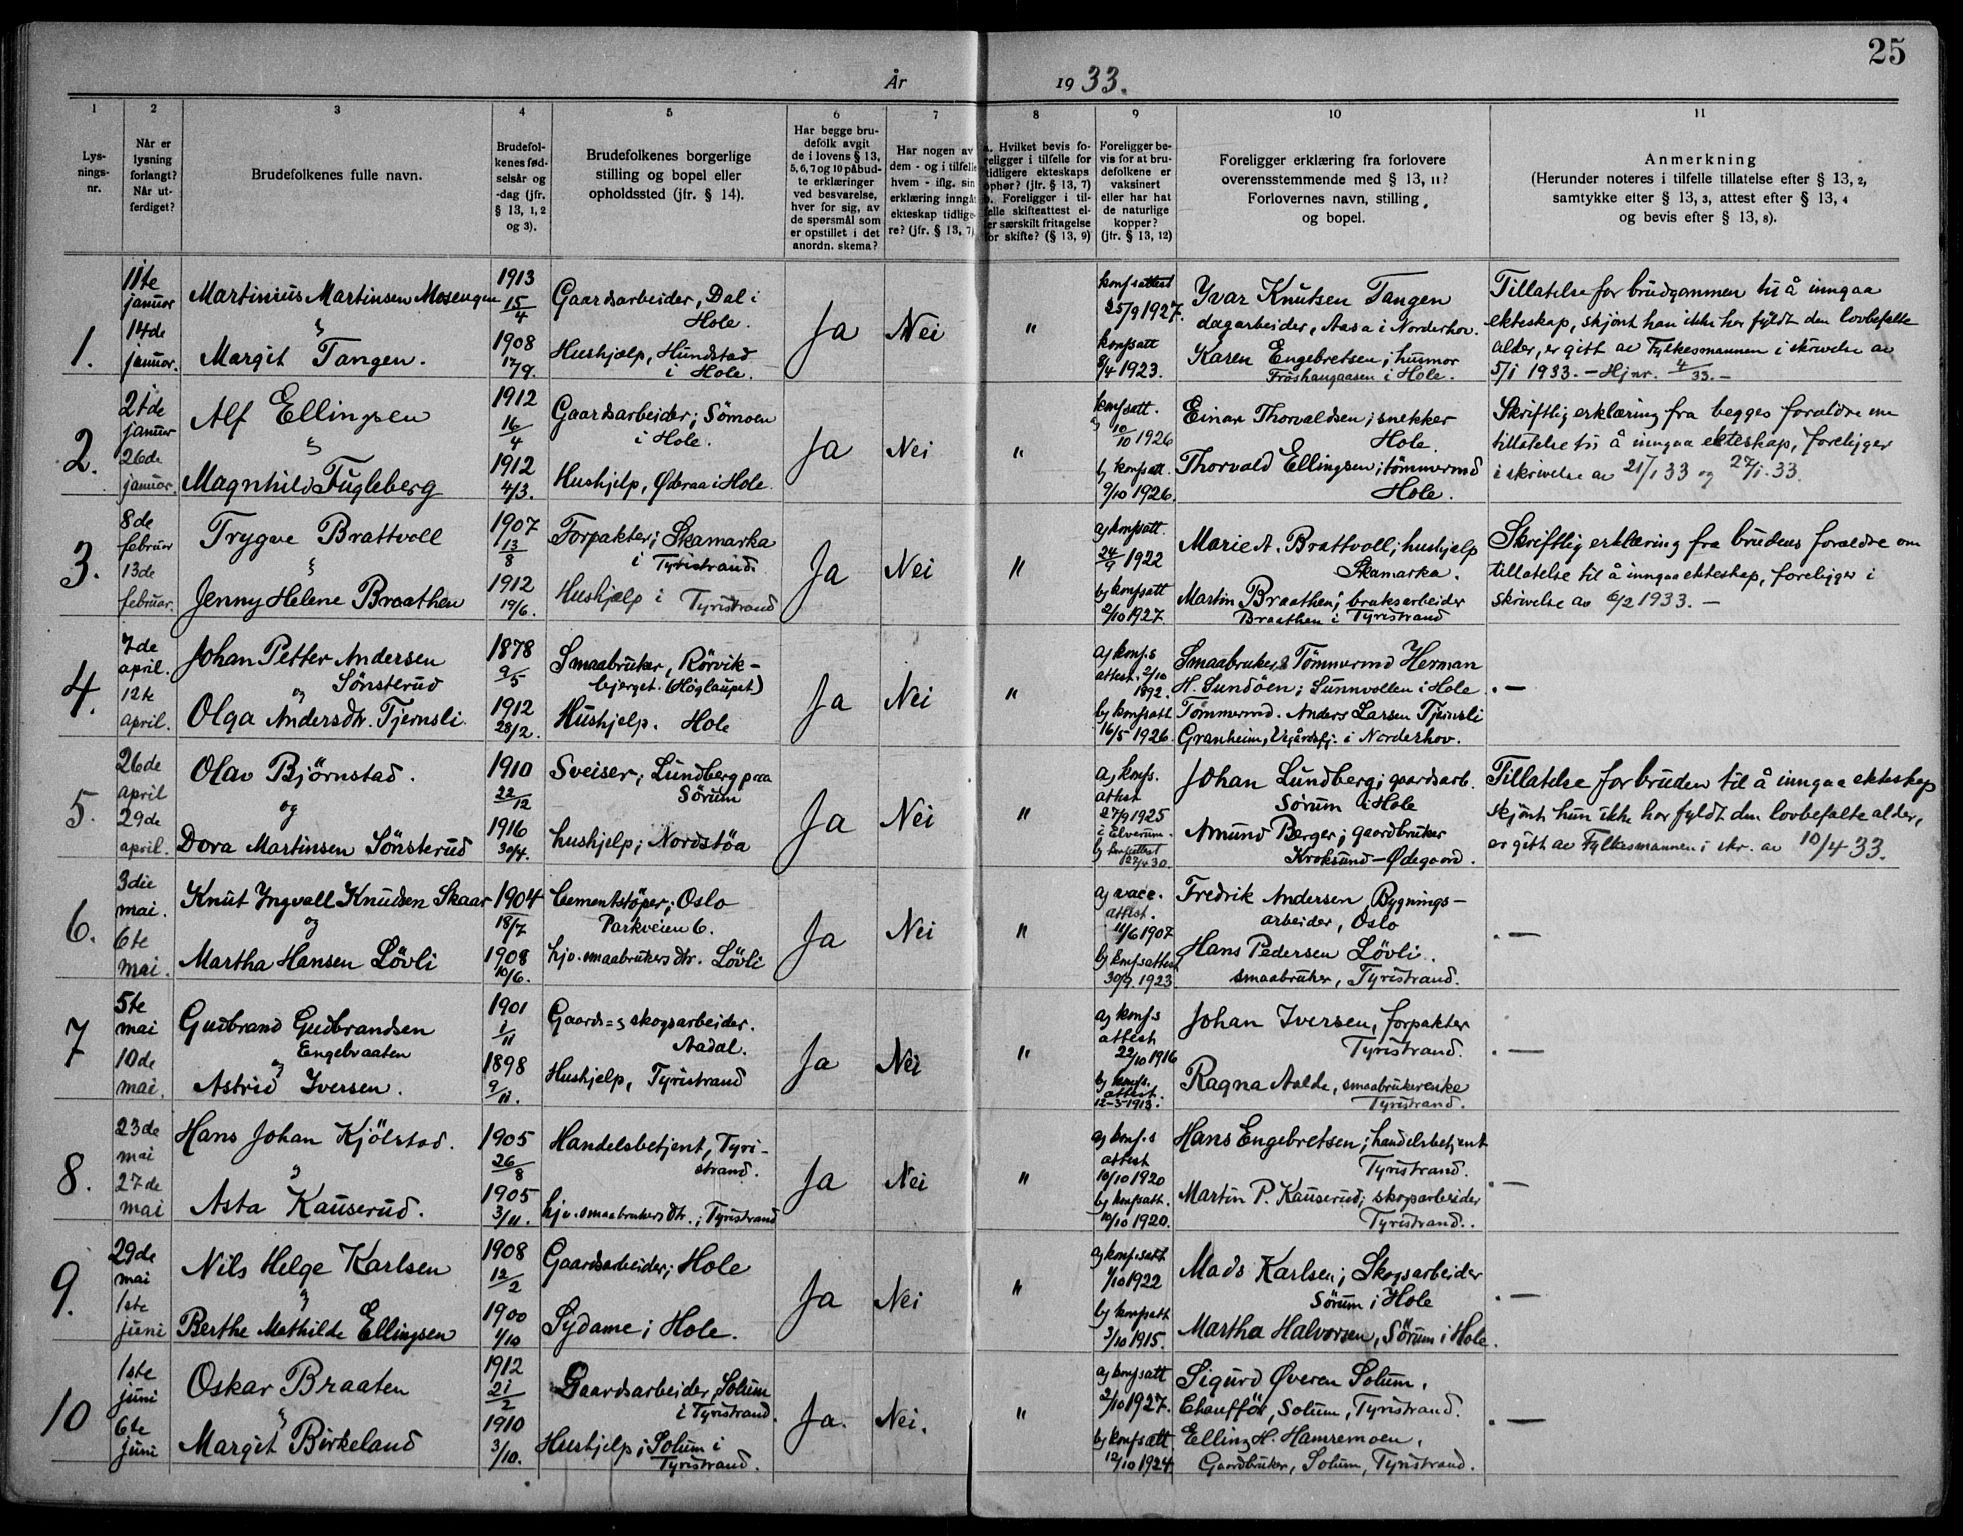 25
År 1933.
1 2 3 4 5 6 7 8 9 10 11
Lysningsnr.
Når er lysning forlangt? Når utferdiget?
Brudefolkenes fulle navn.
Brudefolkenes fødselsår og -dag (jfr. § 13, 1, 2 og 3).
Brudefolkenes borgerlige stilling og bopel eller opholdssted (jfr. § 14).
Har begge brudefolk avgit de i lovens § 13, 5, 6, 7 og 10 påbudte erklæringer ved besvarelse, hver for sig, av de spørsmål som er opstillet i det anordn. skema?
Har nogen av dem - og i tilfelle hvem - iflg. sin erklæring inngått ekteskap tidligere? (jfr. § 13, 7)
a. Hvilket bevis foreligger i tilfelle for tidligere ekteskaps ophør? (jfr. § 13, 7) b. Foreligger i tilfelle skifteattest eller særskilt fritagelse for skifte? (§ 13, 9)
Foreligger bevis for at brudefolkene er vaksinert eller har hat de naturlige kopper? (jfr. § 13, 12)
Foreligger erklæring fra forlovere overensstemmende med § 13, 11? Forlovernes navn, stilling og bopel.
Anmerkning (Herunder noteres i tilfelle tillatelse efter § 13, 2, samtykke efter § 13, 3, attest efter § 13, 4 og bevis efter § 13, 8).
1.
11te januar
14de januar.
Martinius Martinsen Mosengen
Margit Tangen.
1913 15/4
1908 17/9.
Gaardsarbeider, Dal i Hole.
Hushjælp, Hundstad i Hole.
Ja
Nei
"
konfsattest 25/9 1927.
konfsatt 8/4 1923.
Yvar Knutsen Tangen
dagarbeider, Aasa i Norderhov.
Karen Engebretsen; husmor
Fröshaugaasen i Hole.
Tillatelse for brudgommen til å inngaa
ekteskap, skjönt han ikke har fyldt den lovbefalte
alder, er gitt av Fylkesmannen i skrivelse av
5/1 1933. – Hjnr. 4/33. –
2.
21de januar
26de januar.
Alf Ellingsen
Magnhild Fugleberg
1912 16/4
1912 4/3.
Gaardsarbeider; Sömoen i Hole.
Hushjelp, Øderaa i Hole.
Ja
Nei
"
konfsatt. 10/10 1926
b) konfsatt. 9/10 1926.
Einar Thorvaldsen; snekker
Hole.
Thorvald Ellingsen; tömmermd
Hole.
Skriftlig erklæring fra begges forældre om
tillatelse til å inngaa ekteskap, foreligger
i skrivelse av 21/1 33 og 27/1. 33.
3.
8de februar
13de februar.
Trygve Brattvoll
Jenny Helene Braathen
1907 13/8
1912 19/6.
Forpakter; Skamarka i Tyristrand.
Hushjælp i Tyristrand
Ja
Nei
"
a) konfsatt. 24/9 1922
b) konfsatt 2/10 1927.
Marie A. Brattvoll; hushjelp
Skamarka.
Martin Braathen; bruksarbeider
Braathen i Tyristrand
Skriftlig erklæring fra brudens forældre om
tillatelse til å inngaa ekteskap, foreligger i
skrivelse av 6/2 1933. –
4.
7de april.
12te april.
Johan Petter Andersen
Sönsterud
og
Olga Andersdtr. Tjernsli.
1878 9/5
1912 28/2.
Smaabruker, Rörvikbjerget. (Höglaupet)
Hushjelp. Hole
Ja
Nei
"
a) konfs attest. 2/10 1892.
b) konfsatt 16/5 1926.
Smaabruker & Tömmermd Herman
H. Sundöen; Sunnvollen i Hole
Tömmermd. Anders Larsen Tjernsli
Granheim, i Norderhov.
. –
5.
26de april
29de april.
Olav Bjørnstad.
og
Dora Martinsen Sönsterud
1910 22/12
1916 30/4.
Sveiser; Lundberg paa Sörum
hushjelp; Nordstöa
Ja
Nei
"
a) konfs. attest 27/9 1925 i Elverum.
b) konfsattest 27/4 30.
Johan Lundberg; gaardsarb.
Sörum i Hole
Amund Berger; gaardbruker
Kroksund – Ødegaard.
Tillatelse for bruden til å inngaa ekteskap
skjönt hun ikke har fyldt den lovbefalte alder,
er gitt av Fylkesmannen i skr. av 10/4 33.
6.
3die mai.
6te mai.
Knut Yngvall Knudsen Skaar
og
Martha Hansen Lövli
1904 18/7
1908 10/6.
Cementstöper; Oslo
Parkveien 6.
hjv. smaabrukers dtr. Lövli
Ja
Nei
"
a) vacc. attest. 11/6 1907
b) konfsattest 30/9. 1923.
Fredrik Andersen, Bygningsarbeider, Oslo
Hans Pedersen Lövli.
smaabruker, Tyristrand.
. –
7
5te mai
10de mai.
Gudbrand Gudbrandsen
Engebraaten
Astrid Iversen.
1901 1/11
1898 9/11.
Gaards= & skogsarbeider.
Aadal.
Hushjelp, Tyristrand
Ja
Nei
"
a) konfs attest 22/10 1916
b) konfs. attest. 12–3–1913.
Johan Iversen, forpakter
Tyristrand.
Ragna Aalde, smaabrukerenke
Tyristrand.
. –
8.
23de mai
27de mai
Hans Johan Kjölstad.
Asta Kauserud.
1905 26/8
1905 3/11.
Handelsbetjent, Tyristrand.
hjv. smaabrukers dtr.; Tyristrand
Ja
Nei
"
a) konf.s attest 10/10 1920
b) konfsatt. 10/10 1920.
Hans Engebretsen; handelsbetjent
Tyristrand.
Martin P. Kauserud; skogsarbeider
Tyristrand.
. –
9.
29de mai
1ste juni
Nils Helge Karlsen
Berthe Mathilde Ellingsen
1908 12/2
1900 1/10
Gaardsarbeider; Hole
Sydame i Hole.
Ja
Nei
"
a) konf.satt 1/10 1922
b) konfsatt 3/10 1915.
Mads Karlsen; Skogsarbeider
Sörum i Hole
Martha Halvorsen, Sörum i Hole.
. –
10
1ste juni
6te juni
Oskar Braaten
Margit Birkeland
1912 21/2
1910 3/10.
Gaardsarbeider, Solum i Tyristrand.
Hushjelp; Solum i Tyristrand.
Ja.
Nei.
"
a) konfsatt 2/10 1927.
b) konfsatt 12/10 1924
Sigurd Øveren Solum,
Chauffør, Solum, Tyristrand.
Elling H. Hamremoen,
Gaardbruker, Solum, Tyristrand.
. –